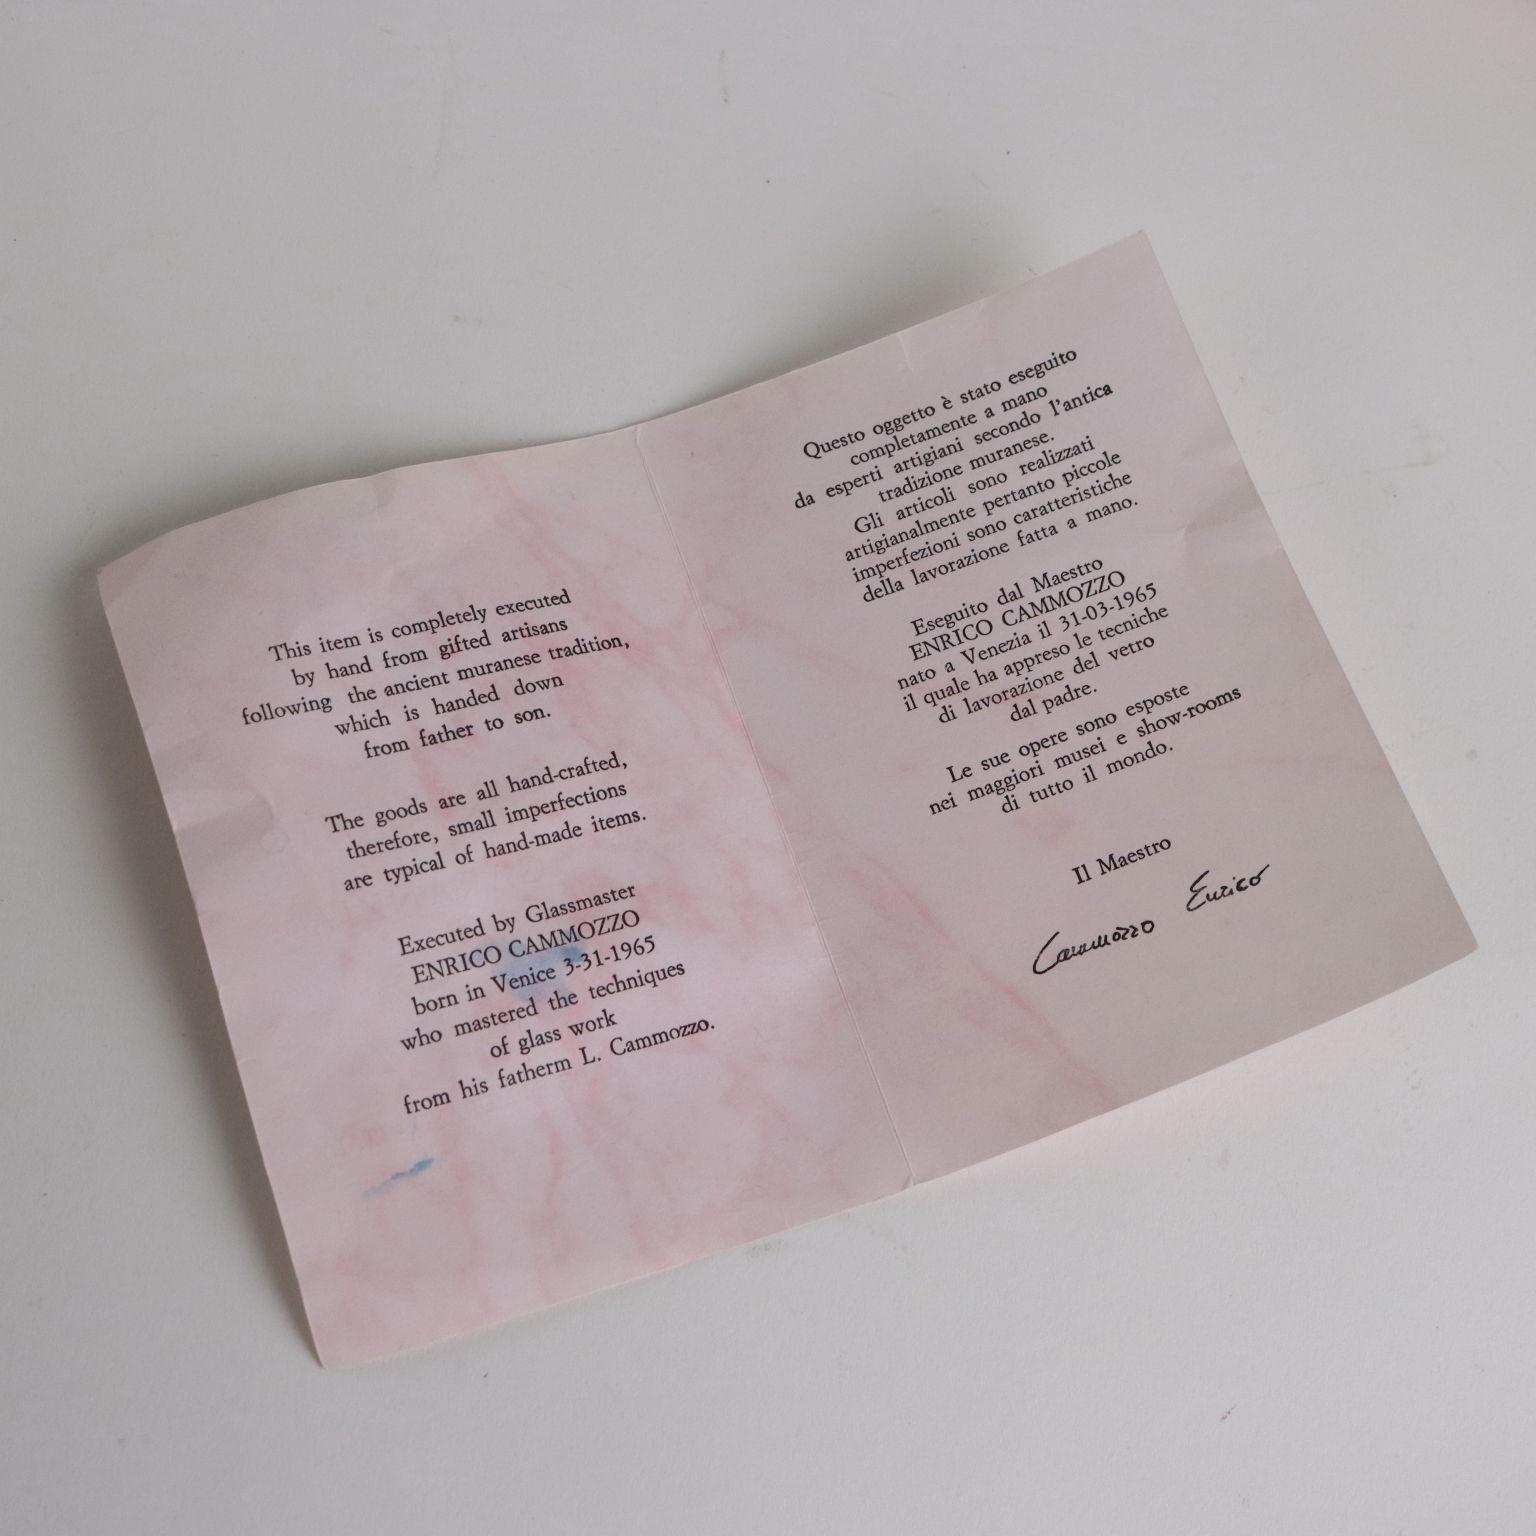 This item is completely executed
by hand from gifted artisans
following the ancient muranese tradition,
which is handed down
from father to son.
The goods are all hand-crafted,
therefore, small imperfections
are typical of hand-made items.
Executed by Glassmaster
ENRICO CAMMOZZO
born in Venice 3-31-1965
who mastered the techniques
of glass work
from his fatherm L. Cammozzo.
Questo oggetto è stato eseguito
completamente a mano
da esperti artigiani secondo l'antica
tradizione muranese.
Gli articoli sono realizzati
artigianalmente pertanto piccole
imperfezioni sono caratteristiche
della lavorazione fatta a mano.
Eseguito dal Maestro
ENRICO CAMMOZZO
nato a Venezia il 31-03-1965
il quale ha appreso le tecniche
di lavorazione del vetro
dal padre.
Le sue opere sono esposte
nei maggiori musei e show-rooms
di tutto il mondo.
Il Maestro
Cammozzo Enrico